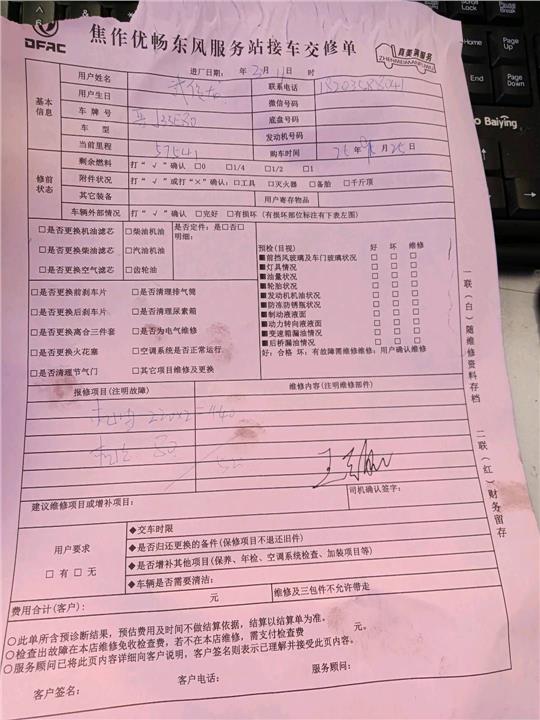 DFAC
焦作优畅东风服务站接车交修单
真美满服务
ZHENMEIMANFUWU
进厂日期： 年 2月11日 时
基本信息
用户姓名
联系电话
用户生日 微信号码
车牌号 底盘号码
车型 发动机号码
当前里程 57541 购车时间 25年 月25日
修前状态
剩余燃料 打“√”确认 □0 □1/4 □1/2 □1
附件状况 打“√”或打“×”确认：□工具 □灭火器 □备胎 □千斤顶
其它装备 用户寄存物品
车辆外部情况 打“√”确认 □完好 □有损坏（有损坏部位标注有下表左图）
□是否更换机油滤芯 □柴油机油 是否定件：是□否□
明细：
□是否更换柴油滤芯 □汽油机油
□是否更换空气滤芯 □齿轮油
□是否更换前刹车片 □是否清理排气筒
□是否更换后刹车片 □是否清理尿素箱
□是否更换离合三件套 □是否为电气维修
□是否更换火花塞 □空调系统是否正常运行
□是否清理节气门 □其它项目维修及更换
预检（目视） 好 坏 维修
■前挡风玻璃及车门玻璃状况 □ □ □
■灯具情况 □ □ □
■油量状况 □ □ □
■轮胎状况 □ □ □
■发动机机油状况 □ □ □
■防冻防锈瓶状况 □ □ □
■制动液液面 □ □ □
■动力转向液液面 □ □ □
■变速箱漏油情况 □ □ □
■后桥漏油情况 □ □ □
好：合格 坏：有故障需维修维修：用户确认维修
报修项目（注明故障） 维修内容（注明维修部件）
220x2=440
建议维修项目或增补项目：
司机确认签字：
用户要求
□有 □无
◆交车时限
◆是否归还更换的备件（保修项目不退还旧件）
◆是否增补其他项目（保养、年检、空调系统检查、加装项目等）
◆车辆是否需要清洁：
费用合计（客户）： 元 维修及三包件不允许带走
○此单所含预诊断结果，预估费用及时间不做结算依据，结算以结算单为准。
○检查出故障在本店维修免收检查费，若不在本店维修，需支付检查费 元。
○服务顾问已将此页内容详细向客户说明，客户签名则表示已理解并接受此页内容。
客户签名： 客户电话： 服务顾问：
一联（白）随维修资料存档
二联（红）财务留存
Ctrl
Home
End
Page Up
Page Down
Baiying